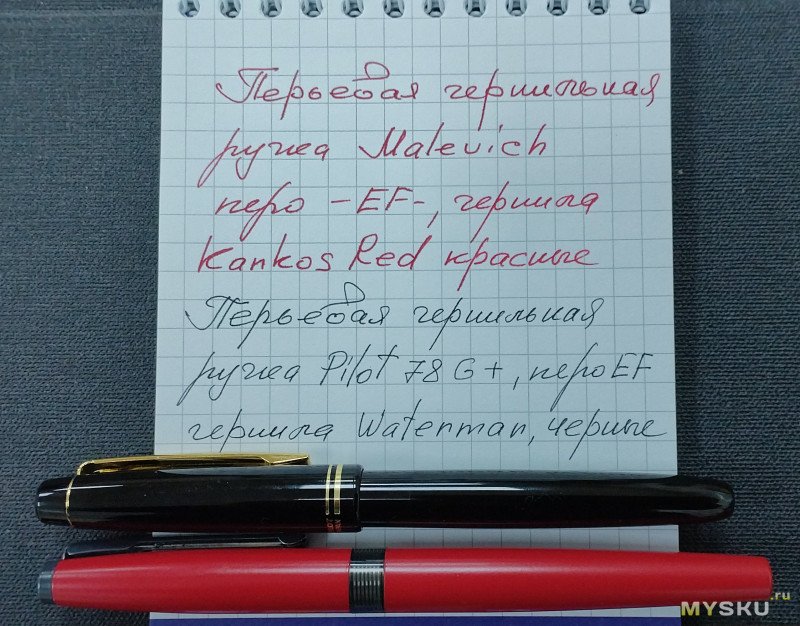 Перьевая чернильная
ручка Malevich
перо -EF-, чернила
Kankos Red красные
Перьевая чернильная
ручка Pilot 78G+, перо EF
чернила Waterman, черные
MYSKU.ru